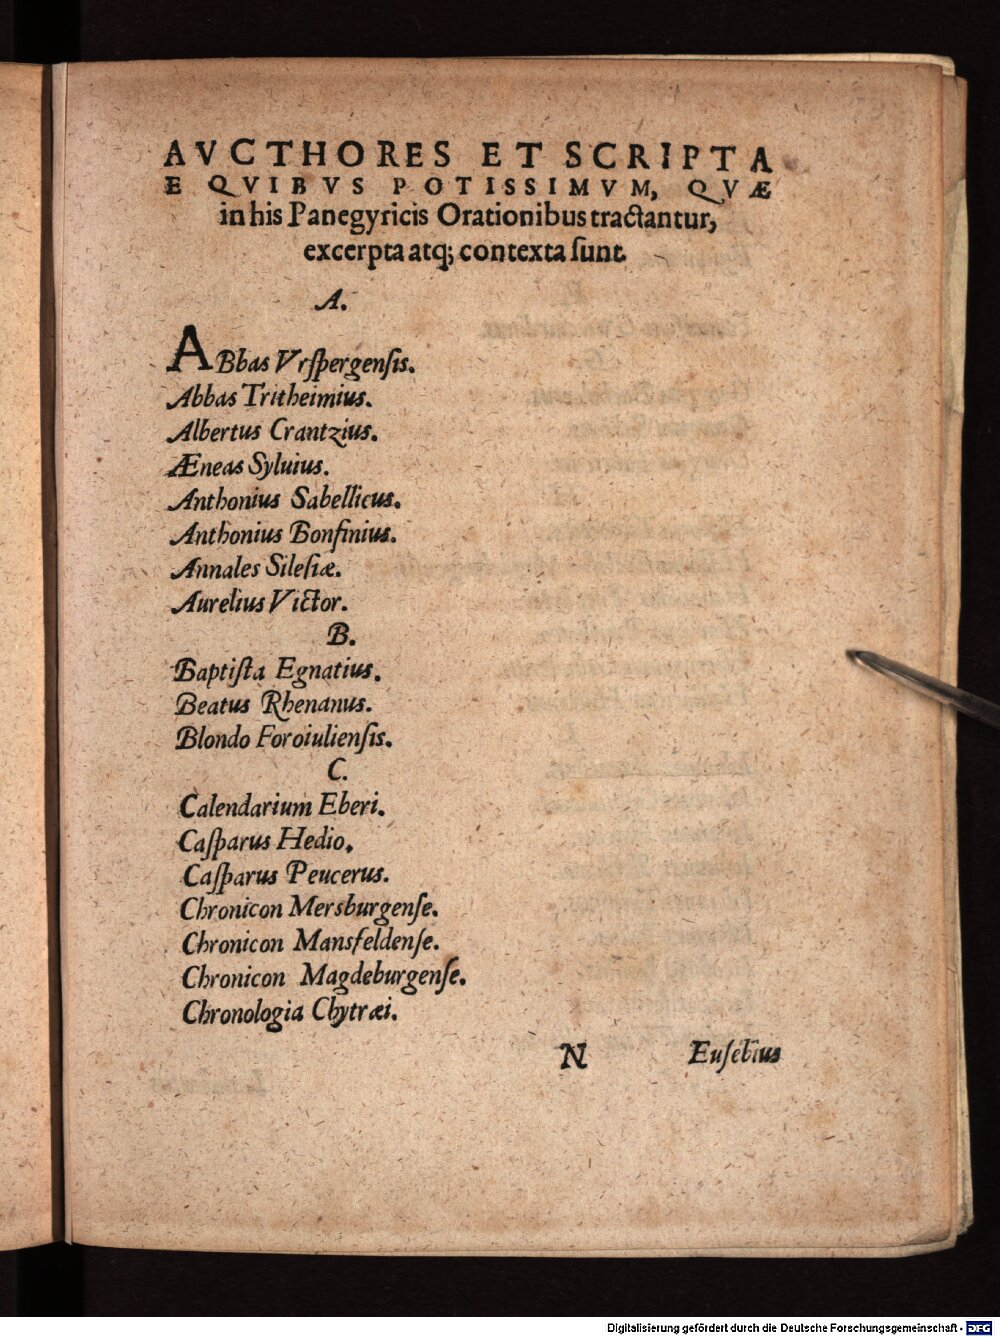 AVCTHORES ET SCRIPTA
E QVIBVS POTISSIMVM, QVÆ
in his Panegyricis Orationibus tractantur,
excerpta atq; contexta sunt.
A.
ABbas Vrspergensis.
Abbas Tritheimius.
Albertus Crantzius.
Æneas Syluius.
Anthonius Sabellicus.
Anthonius Bonfinius.
Annales Silesiæ.
Aurelius Victor.
B.
Baptista Egnatius.
Beatus Rhenanus.
Blondo Foroiuliensis.
C.
Calendarium Eberi.
Casparus Hedio.
Casparus Peucerus.
Chronicon Mersburgense.
Chronicon Mansfeldense.
Chronicon Magdeburgense.
Chronologia Chytræi.
N Eusebius
Digitalisierung gefördert durch die Deutsche Forschungsgemeinschaft - DFG